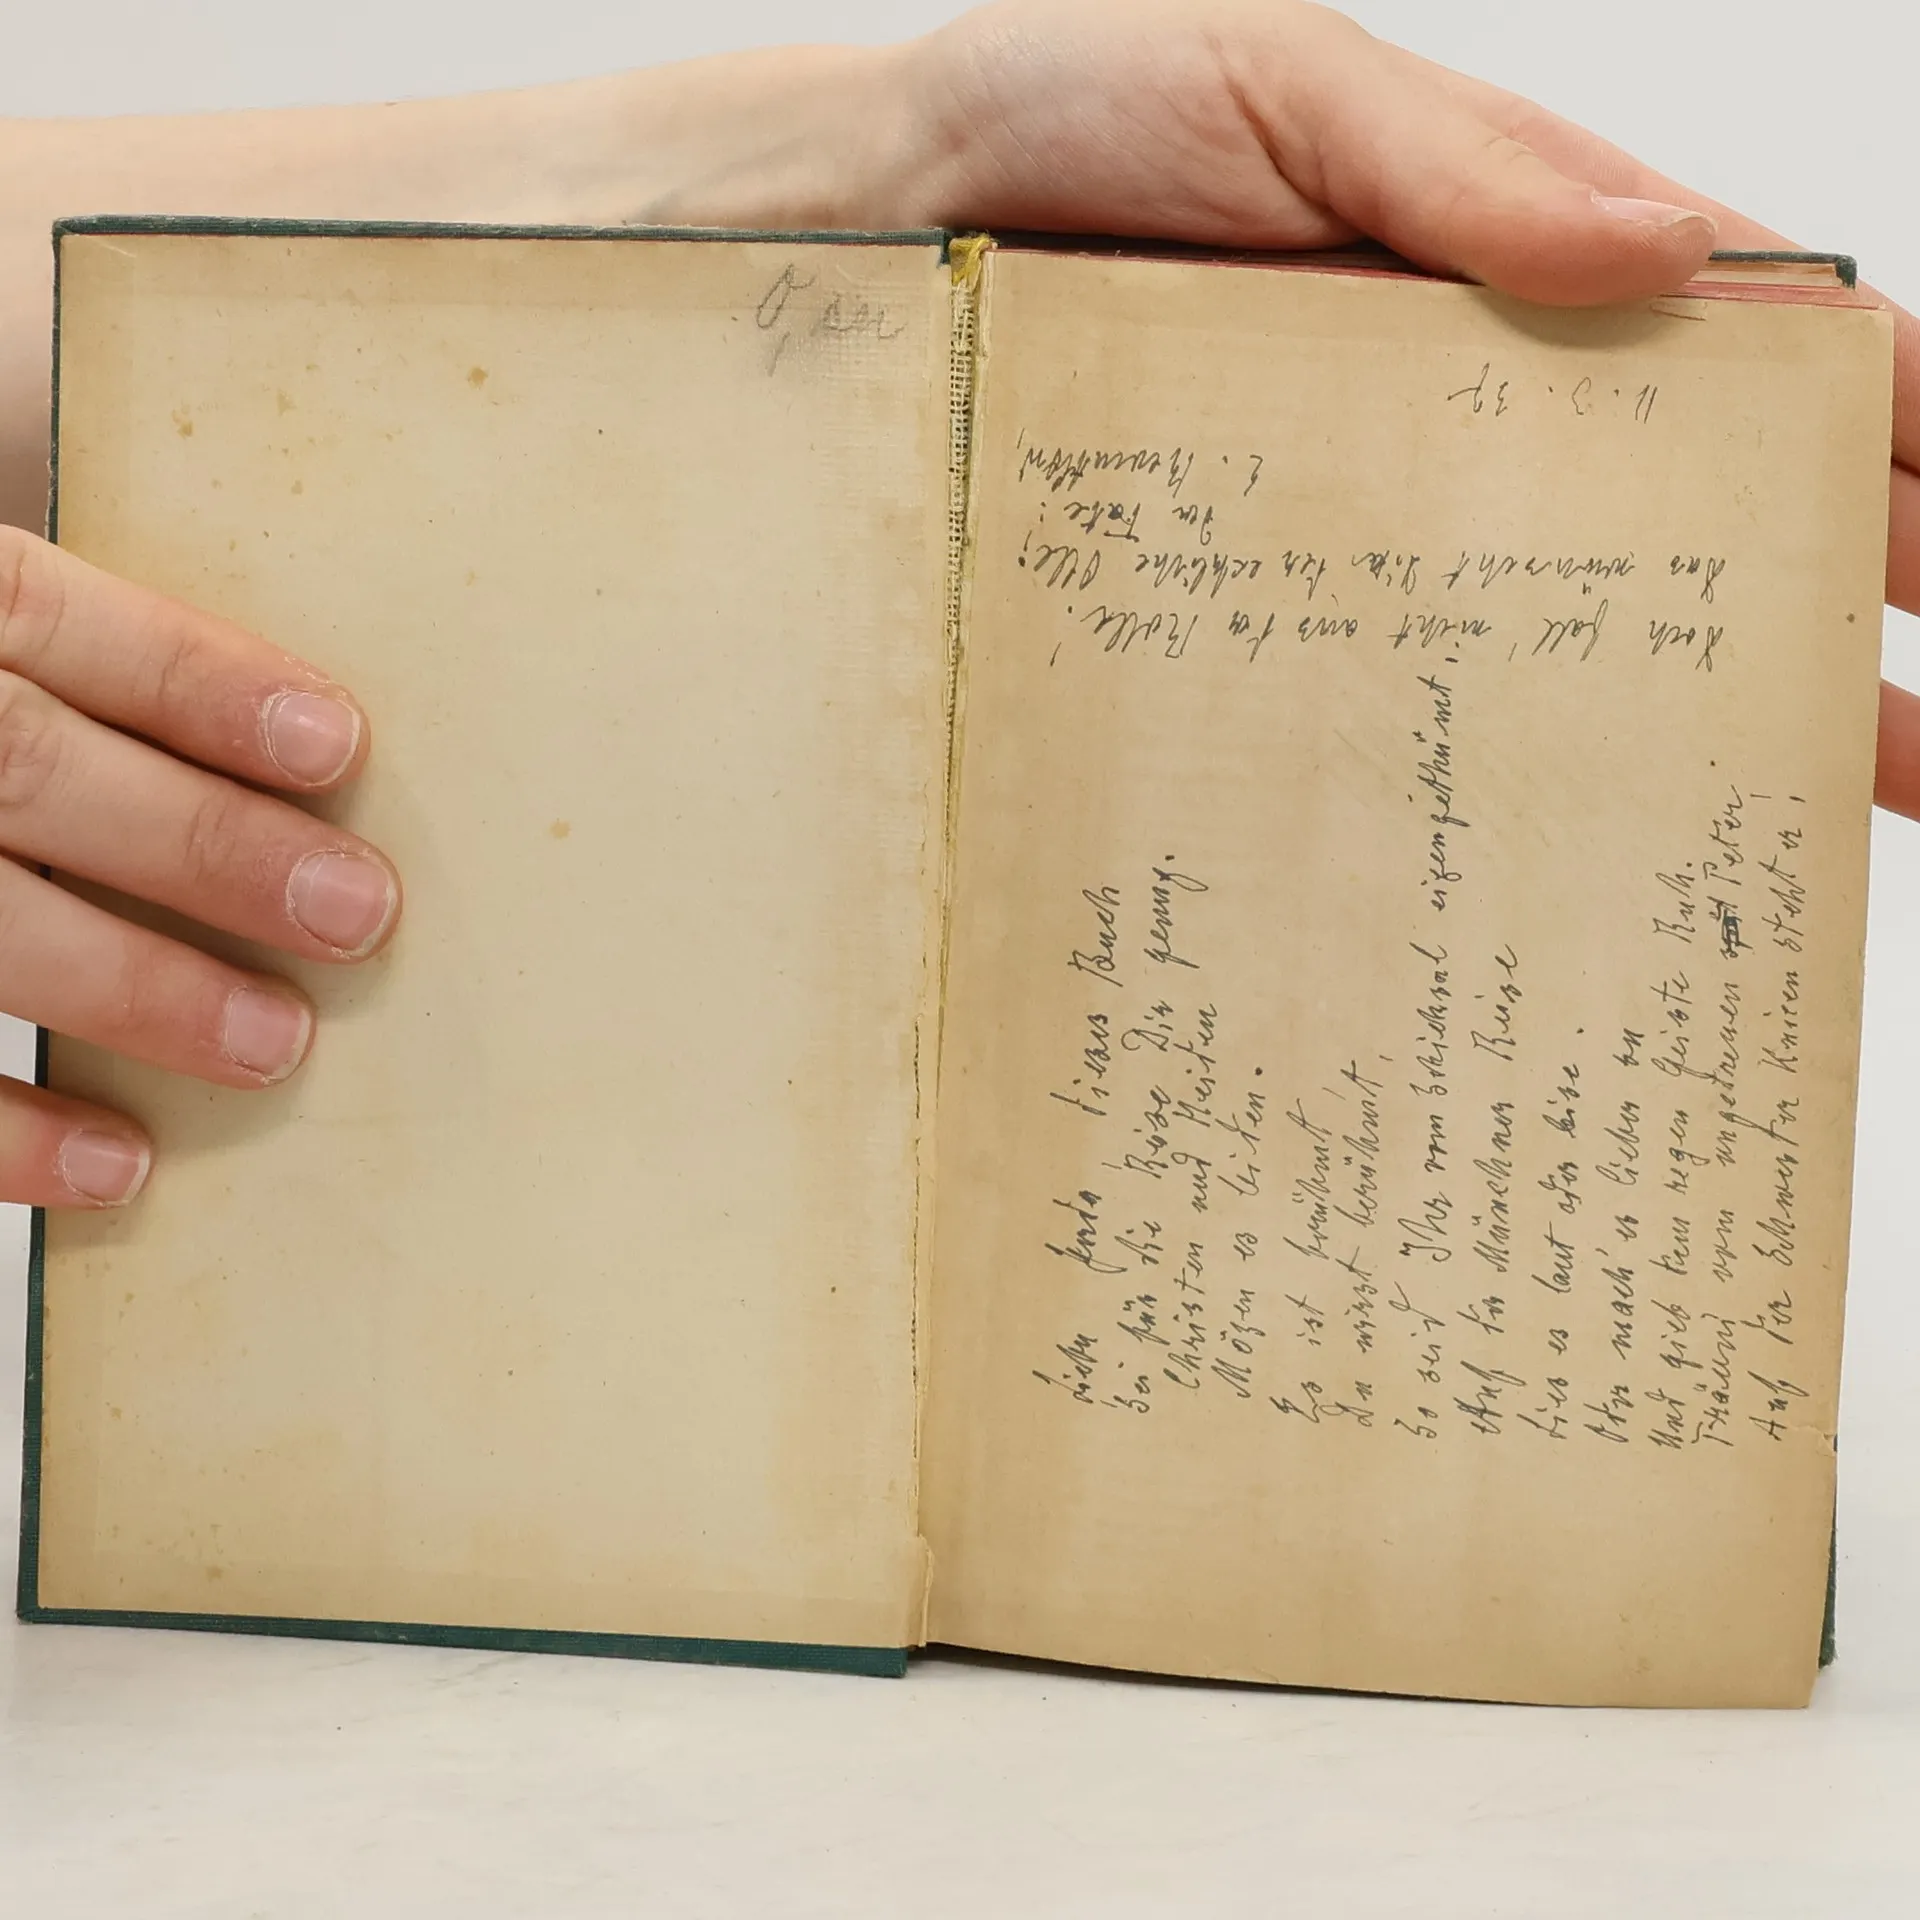 Lieber Freda, dieses Buch
Sei für die Reise Dir genug.
Christen und Heiden
Mögen es leiden.
Es ist berühmt,
Du wirst berühmt,
So seid Ihr vom Schicksal
Auf der Münchner Reise
Lies es laut oder leise.
Oder mach' es lieber zu
Und gieb dem regen Geiste Ruh.
Träum' vom ungetreuen Peter.
Auf der Schwester Knieen steht er!
Doch fall' nicht aus der Rolle!
Das wünscht Dir der ehrliche Olle,
Der Fate:
E. Reventlow,
11. 3. 37